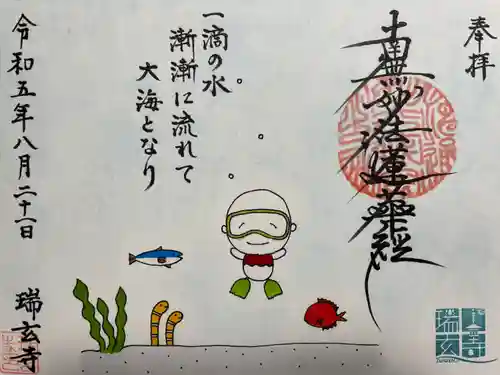 奉拝
南無妙法蓮華経
一滴の水
漸漸に流れて
大海となり
令和五年八月二十一日
瑞玄寺
瑞玄